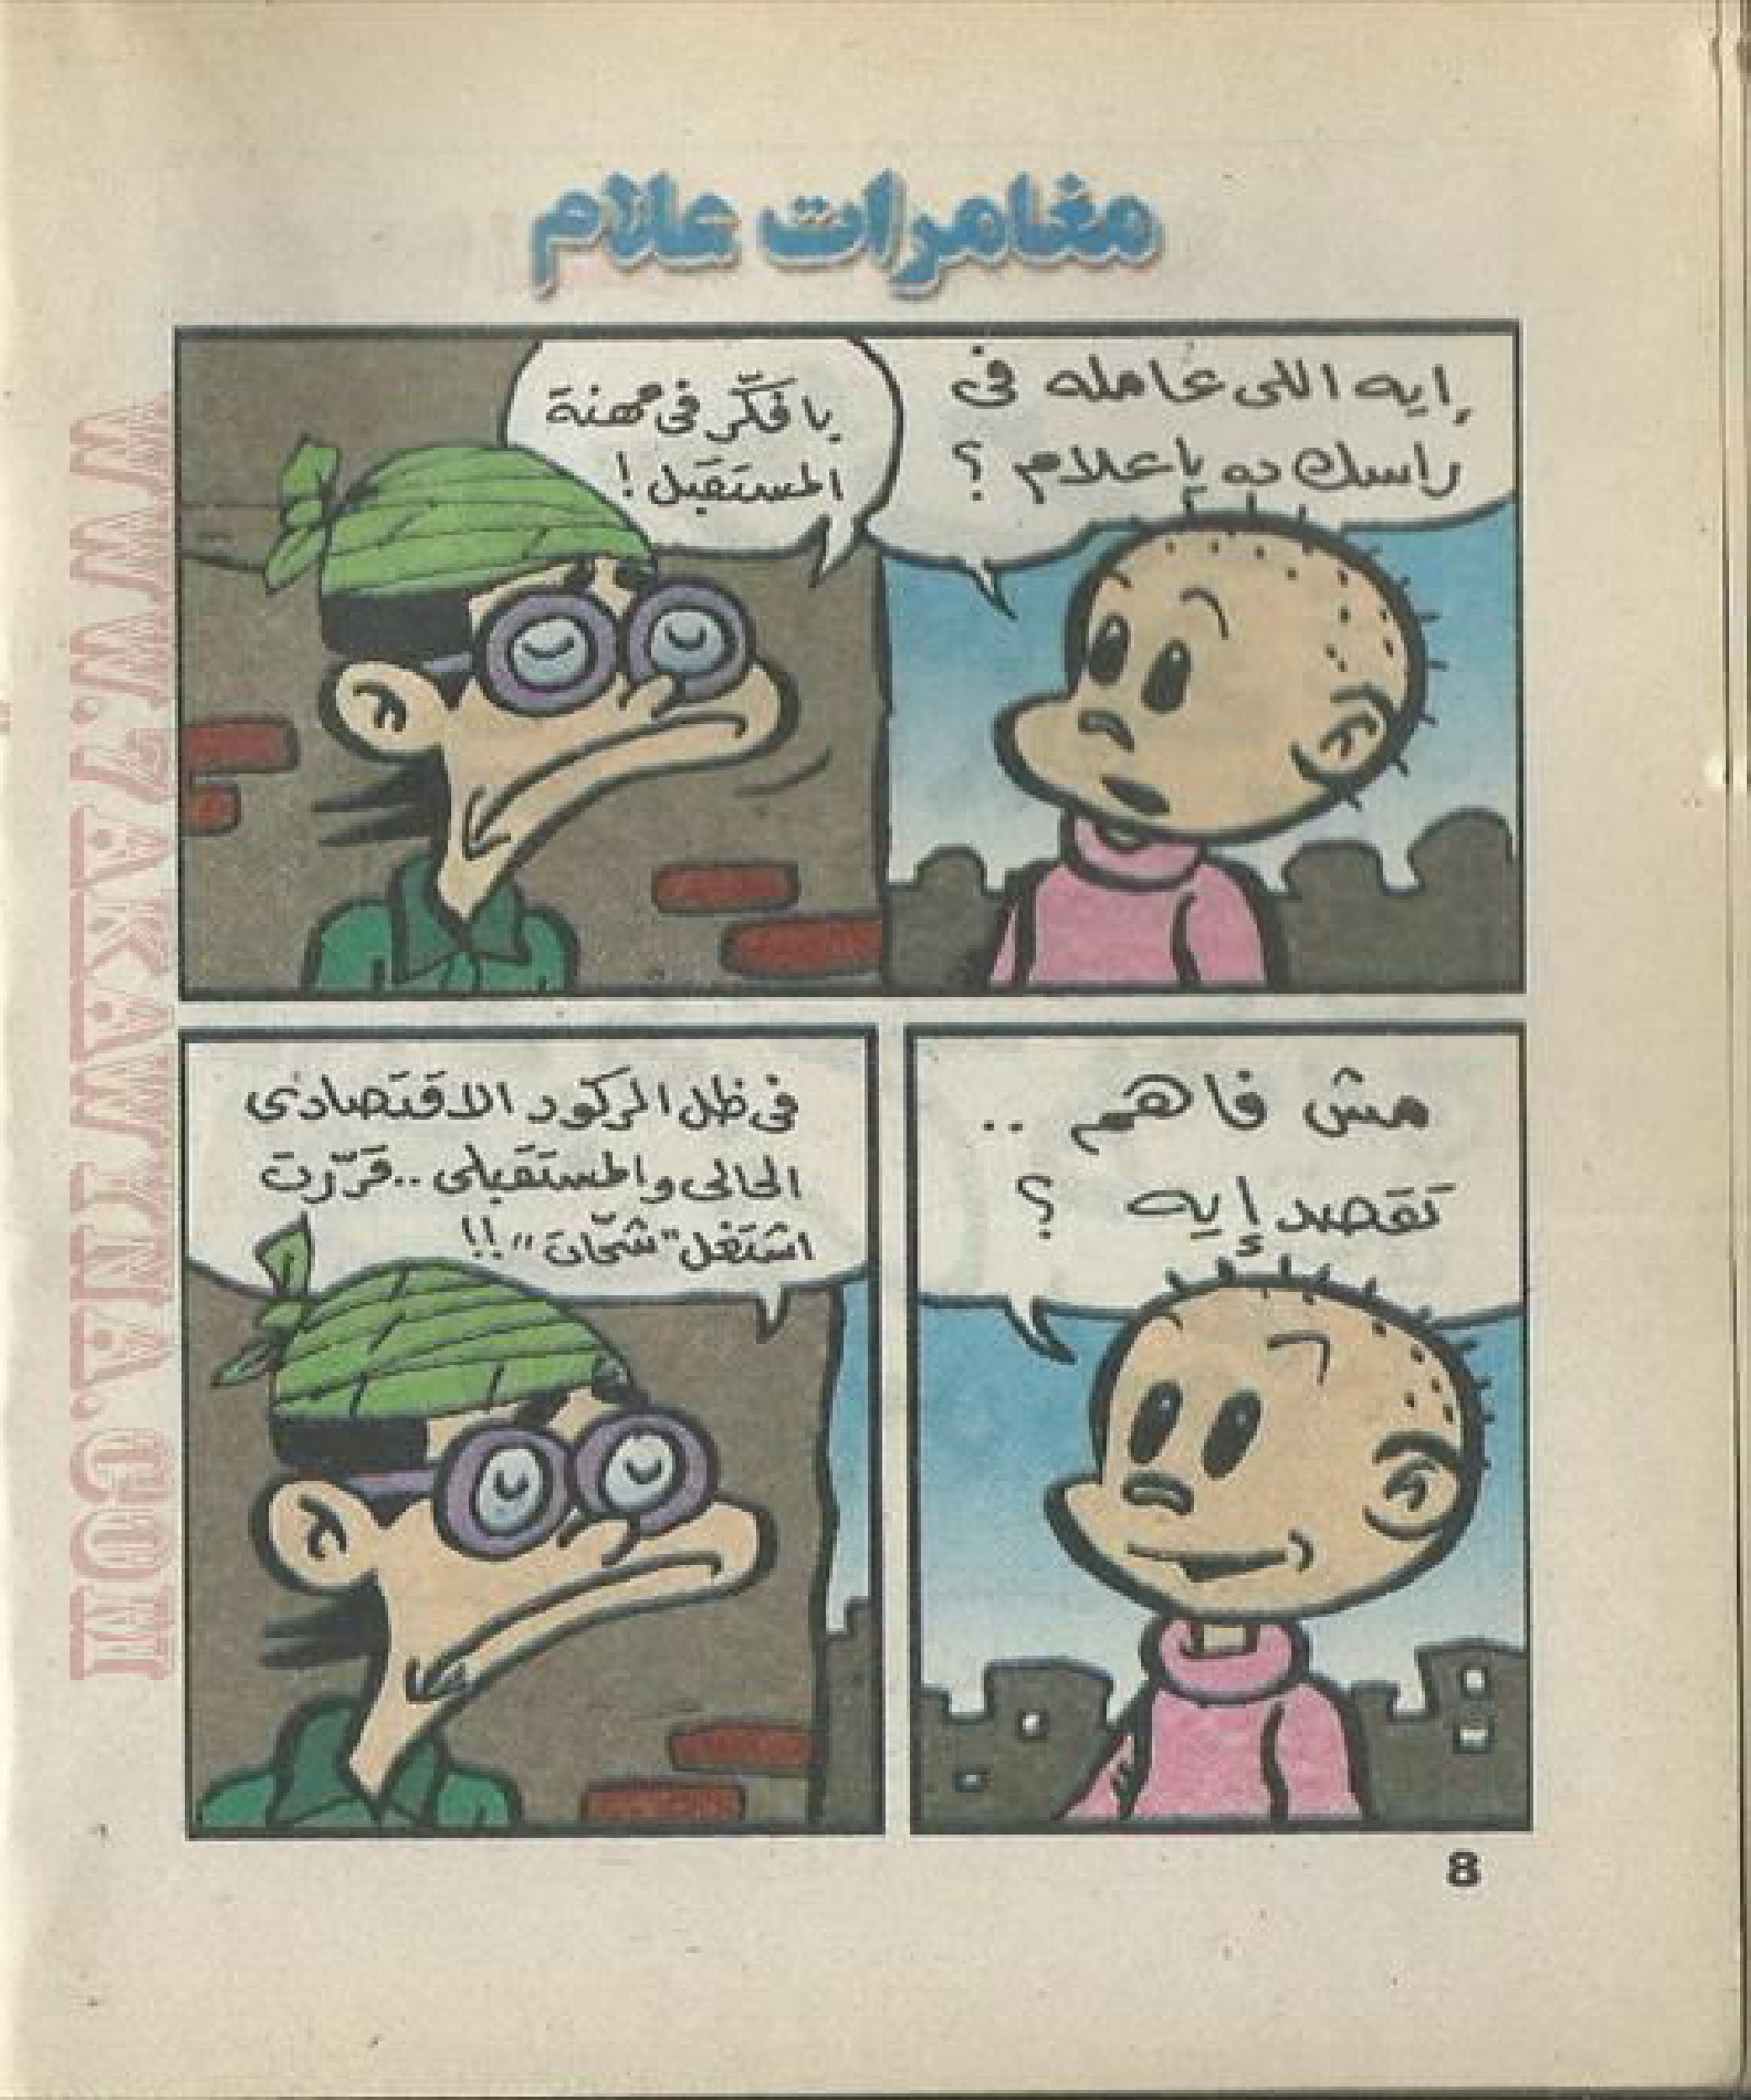 مغامرات علام
إيه اللى عامله فى
راسك ده ياعلام ؟
بافكّر فى مهنة
المستقبل !
مش فاهم ..
تقصد إيه ؟
فى ظل الركود الاقتصادى
الحالى والمستقبلى .. قرّرت
اشتغل "شحّات" !!
8
WWW.ZAKAWTNA.COM